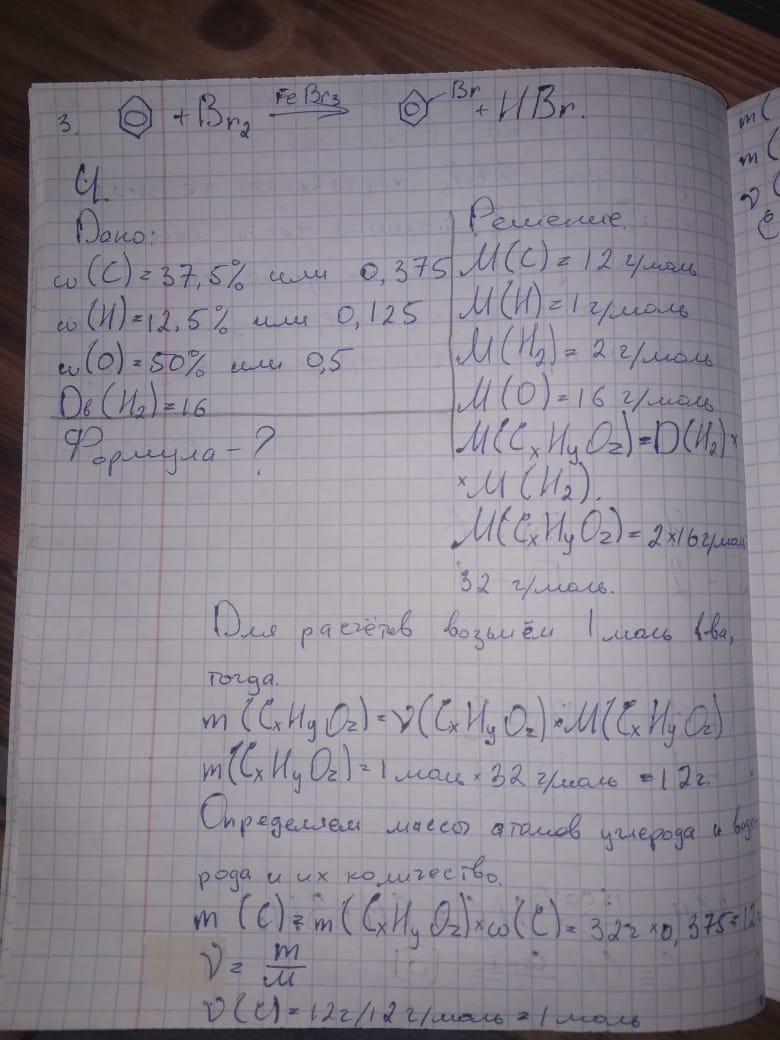 3. + Br2 FeBr3 Br + HBr.
4
Дано:
ω(C)=37,5% или 0,375
ω(H)=12,5% или 0,125
ω(O)=50% или 0,5
Dв(H2)=16
Формула-?
Решение.
M(C)=12 г/моль
M(H)=1 г/моль
M(H2)=2 г/моль
M(O)=16 г/моль
M(CxHyOz)=D(H2)×
×M(H2).
M(CxHyOz)=2×16 г/моль
32 г/моль.
Для расчётов возьмём 1 моль в-ва,
тогда.
m(CxHyOz)=ν(CxHyOz)•M(CxHyOz)
m(CxHyOz)=1 моль × 32 г/моль =12г.
Определяем массы атомов углерода и водо
рода и их количество.
m(C)=m(CxHyOz)×ω(C)=32г×0,375=12
ν= m/M
ν(C)=12г/12г/моль=1моль
m(
m(
ν(